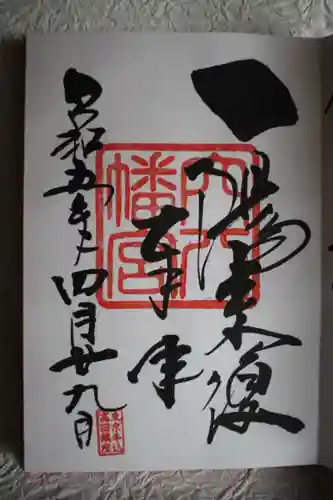 一陽来復
穴八幡宮
令和五年四月廿九日
東京牛込
高田鎮座